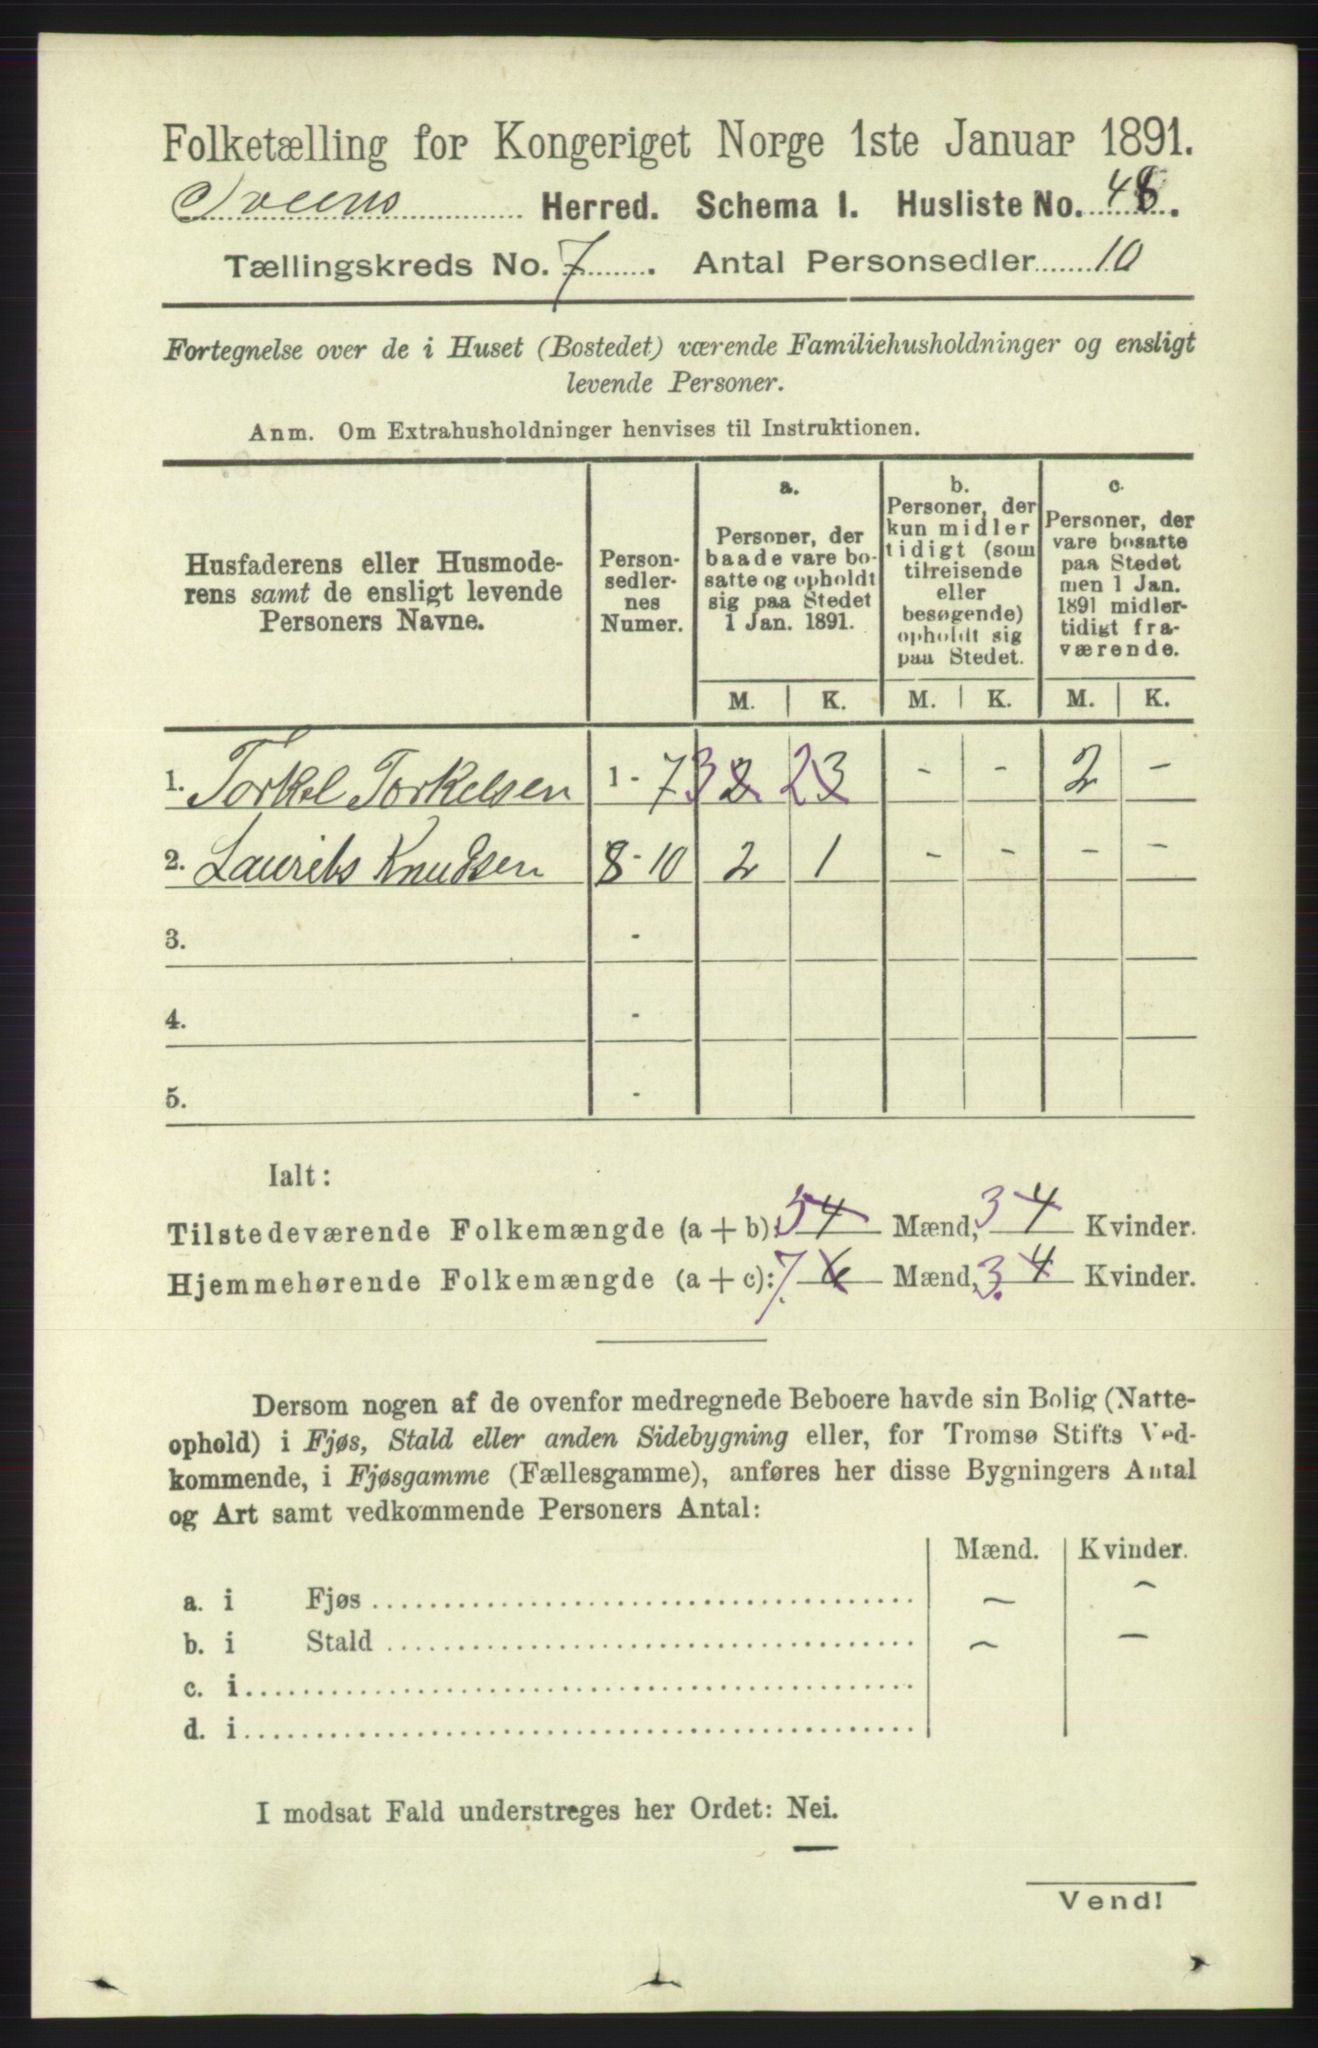 Folketælling for Kongeriget Norge 1ste Januar 1891.
Sveens Herred. Schema I. Husliste No. 48.
Tællingskreds No. 7. Antal Personsedler 10
Fortegnelse over de i Huset (Bostedet) værende Familiehusholdninger og ensligt
levende Personer.
Anm. Om Extrahusholdninger henvises til Instruktionen.
Husfaderens eller Husmode-
rens samt de ensligt levende
Personers Navne.
Person-
sedler-
nes
Numer.
a.
Personer, der
baade vare bo-
satte og opholdt
sig paa Stedet
1 Jan. 1891.
b.
Personer, der
kun midler
tidigt (som
tilreisende
eller
besøgende)
opholdt sig
paa Stedet.
c.
Personer, der
vare bosatte
paa Stedet
men 1 Jan.
1891 midler-
tidigt fra-
værende.
M. K. M. K. M. K.
1. Torkel Torkelsen 1 - 7 3 2 2 3 - - 2 -
2. Laurits Knudsen 8 - 10 2 1 - - - -
3. -
4. -
5. -
Ialt:
Tilstedeværende Folkemængde (a + b): 5 4 Mænd, 3 4 Kvinder.
Hjemmehørende Folkemængde (a + c): 7. 6 Mænd, 3. 4 Kvinder.
Dersom nogen af de ovenfor medregnede Beboere havde sin Bolig (Natte-
ophold) i Fjøs, Stald eller anden Sidebygning eller, for Tromsø Stifts Ved-
kommende, i Fjøsgamme (Fællesgamme), anføres her disse Bygningers Antal
og Art samt vedkommende Personers Antal:
Mænd. Kvinder.
a. i Fjøs - -
b. i Stald - -
c. i
d. i
I modsat Fald understreges her Ordet: Nei.
Vend!